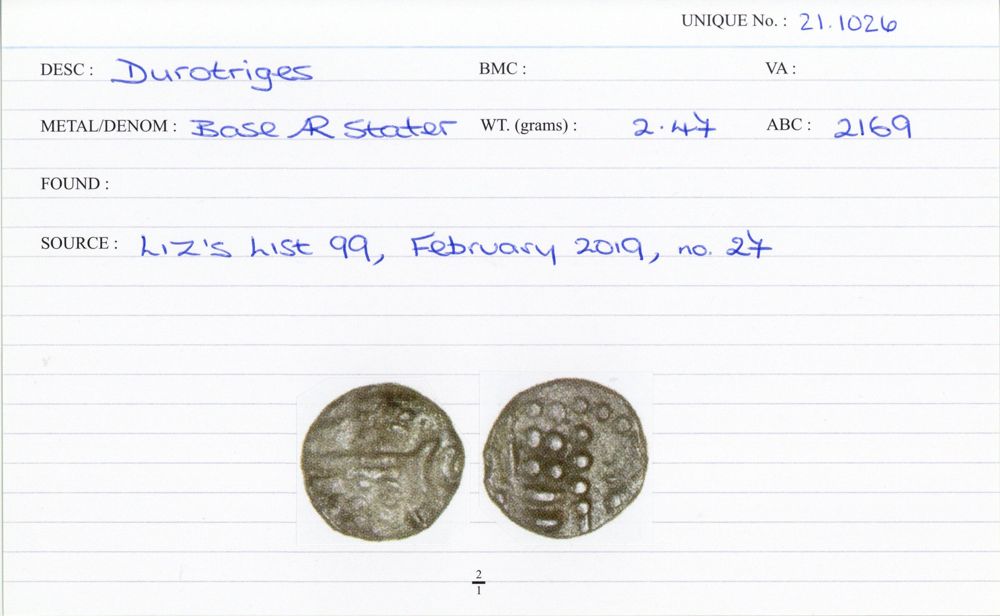 UNIQUE No. : 21.1026
DESC : Durotriges BMC : VA :
METAL/DENOM : Base AR Stater WT. (grams) : 2.47 ABC : 2169
FOUND :
SOURCE : Liz's List 99, February 2019, no. 27
2
1